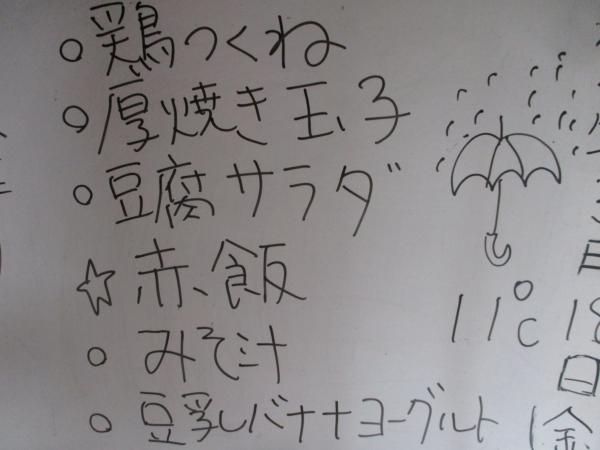 ○ 鶏つくね
○ 厚焼き玉子
○ 豆腐サラダ
☆ 赤飯
○ みそ汁
○ 豆乳バナナヨーグルト
11℃
18
日
(金